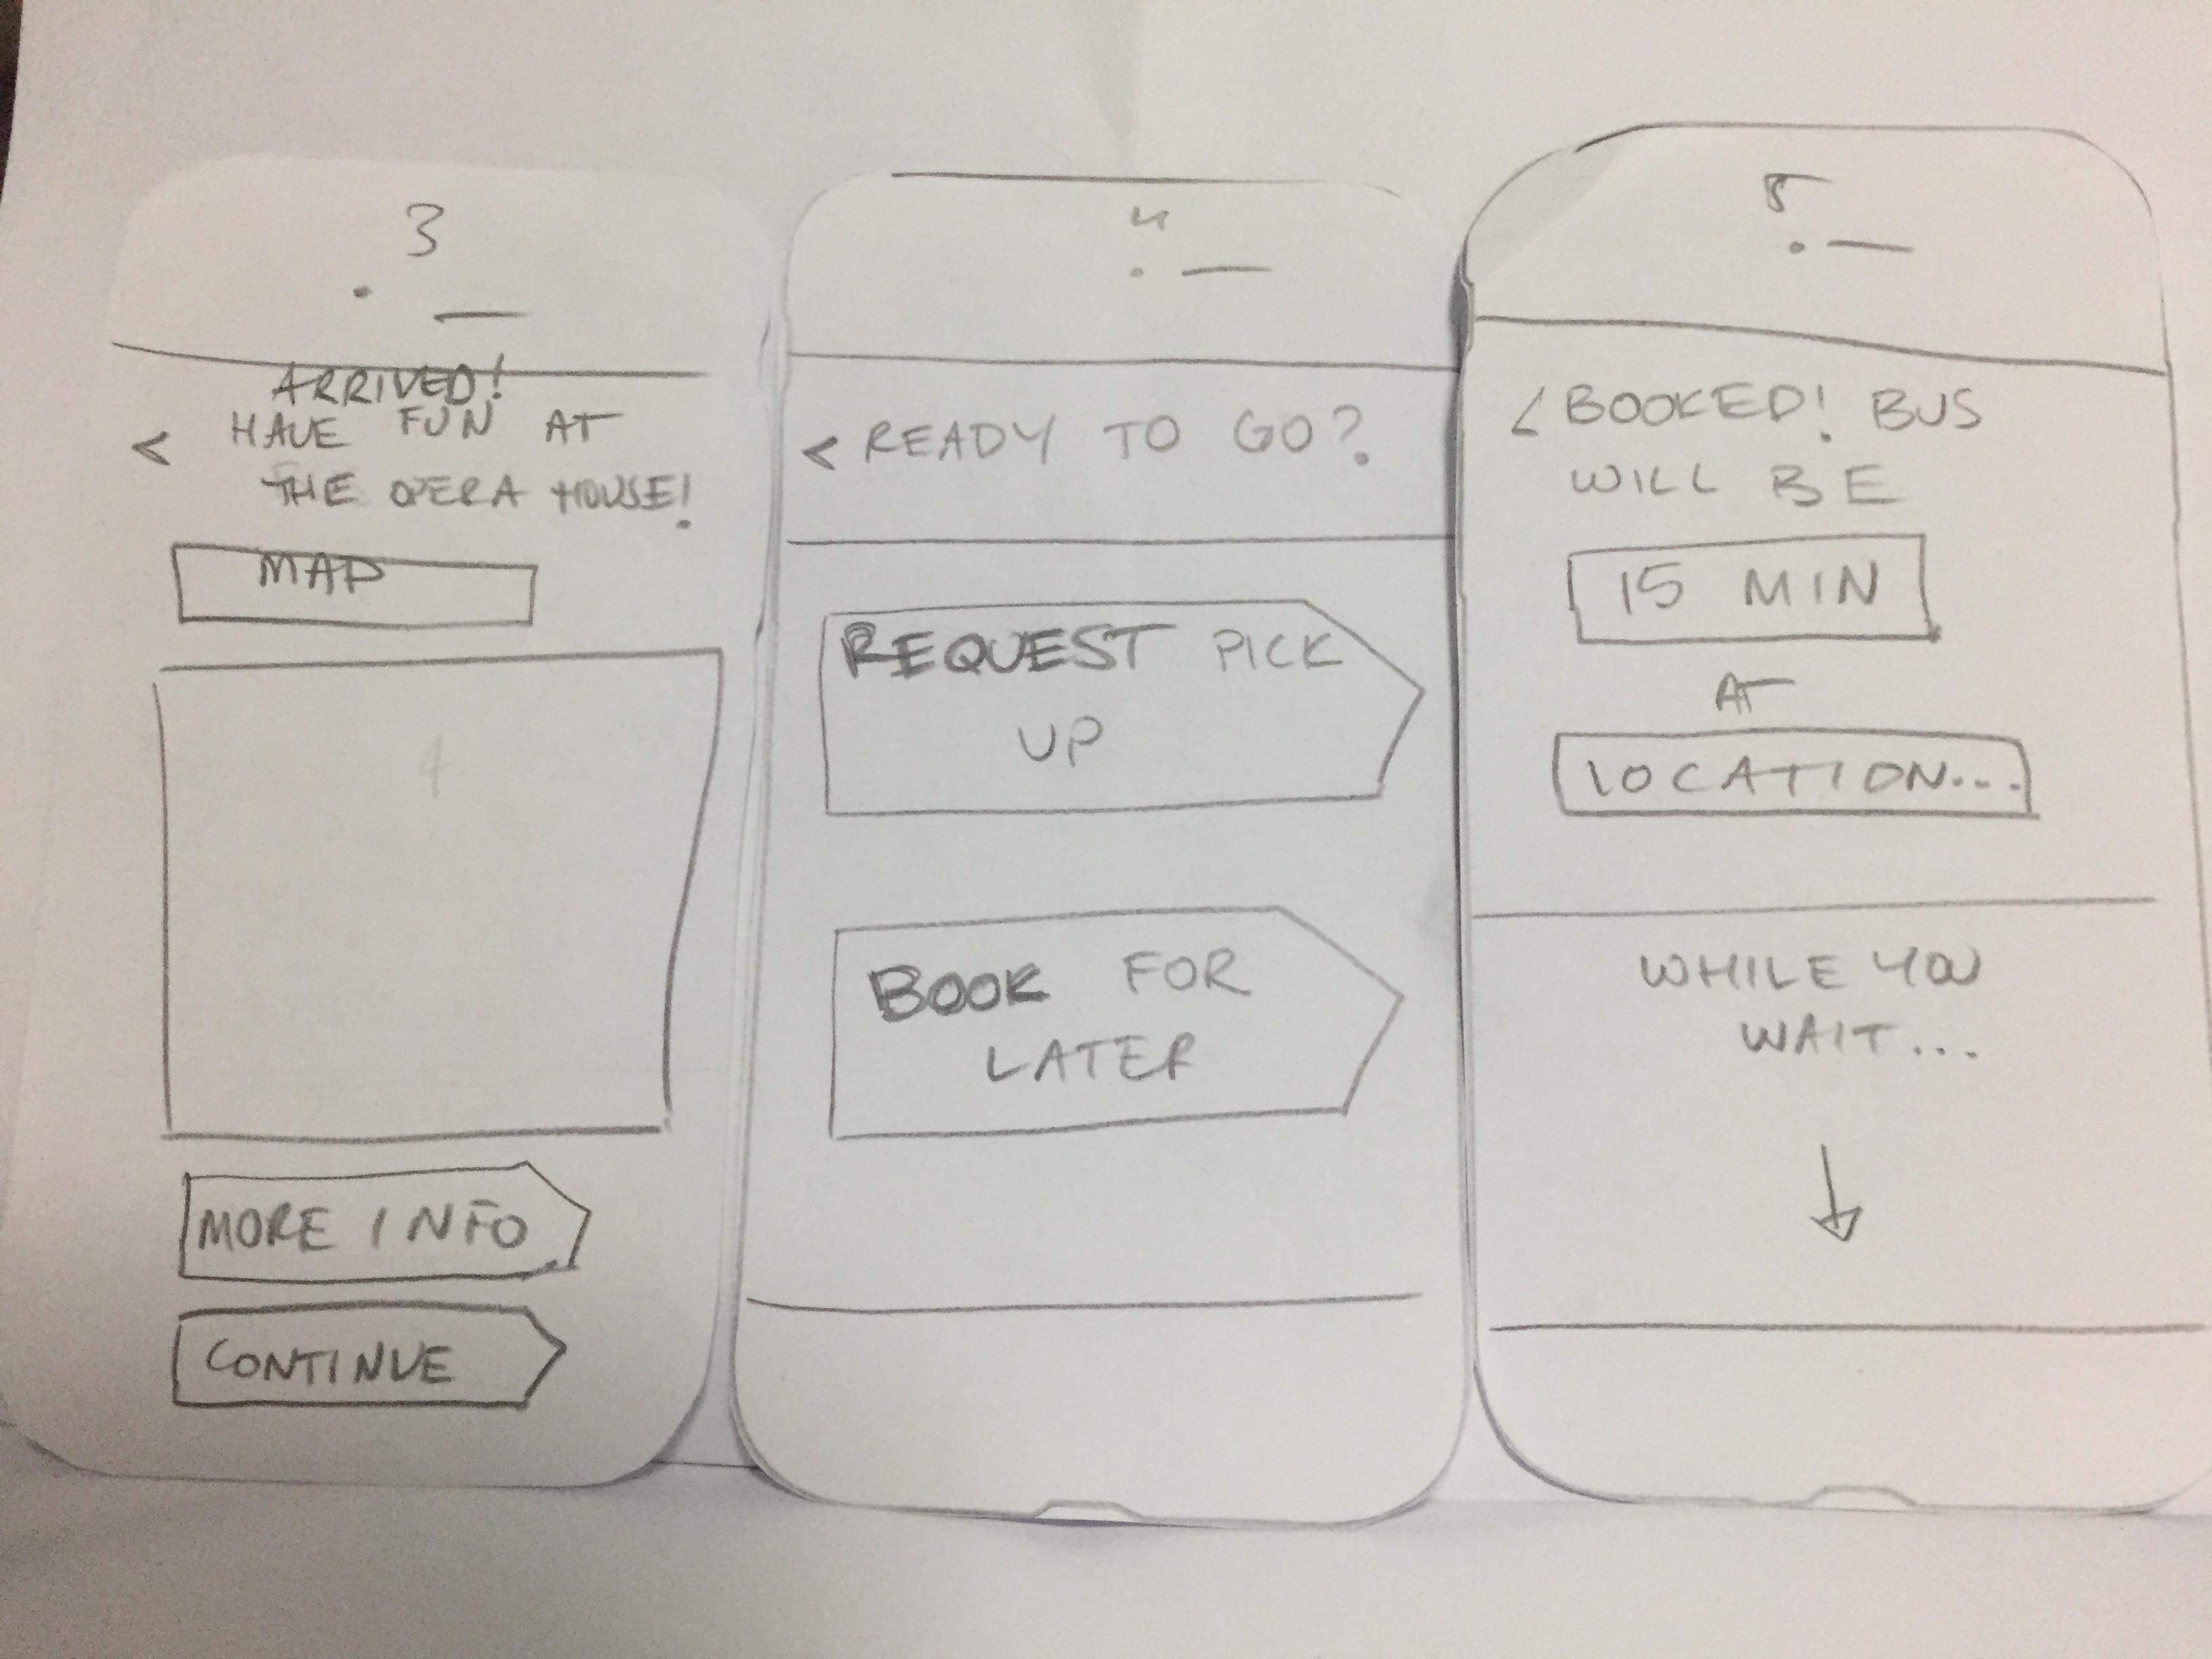 3
ARRIVED!
< HAVE FUN AT
THE OPERA HOUSE!
MAP
MORE INFO
CONTINUE
4
< READY TO GO?
REQUEST PICK
UP
BOOK FOR
LATER
5
< BOOKED! BUS
WILL BE
15 MIN
AT
LOCATION...
WHILE YOU
WAIT...